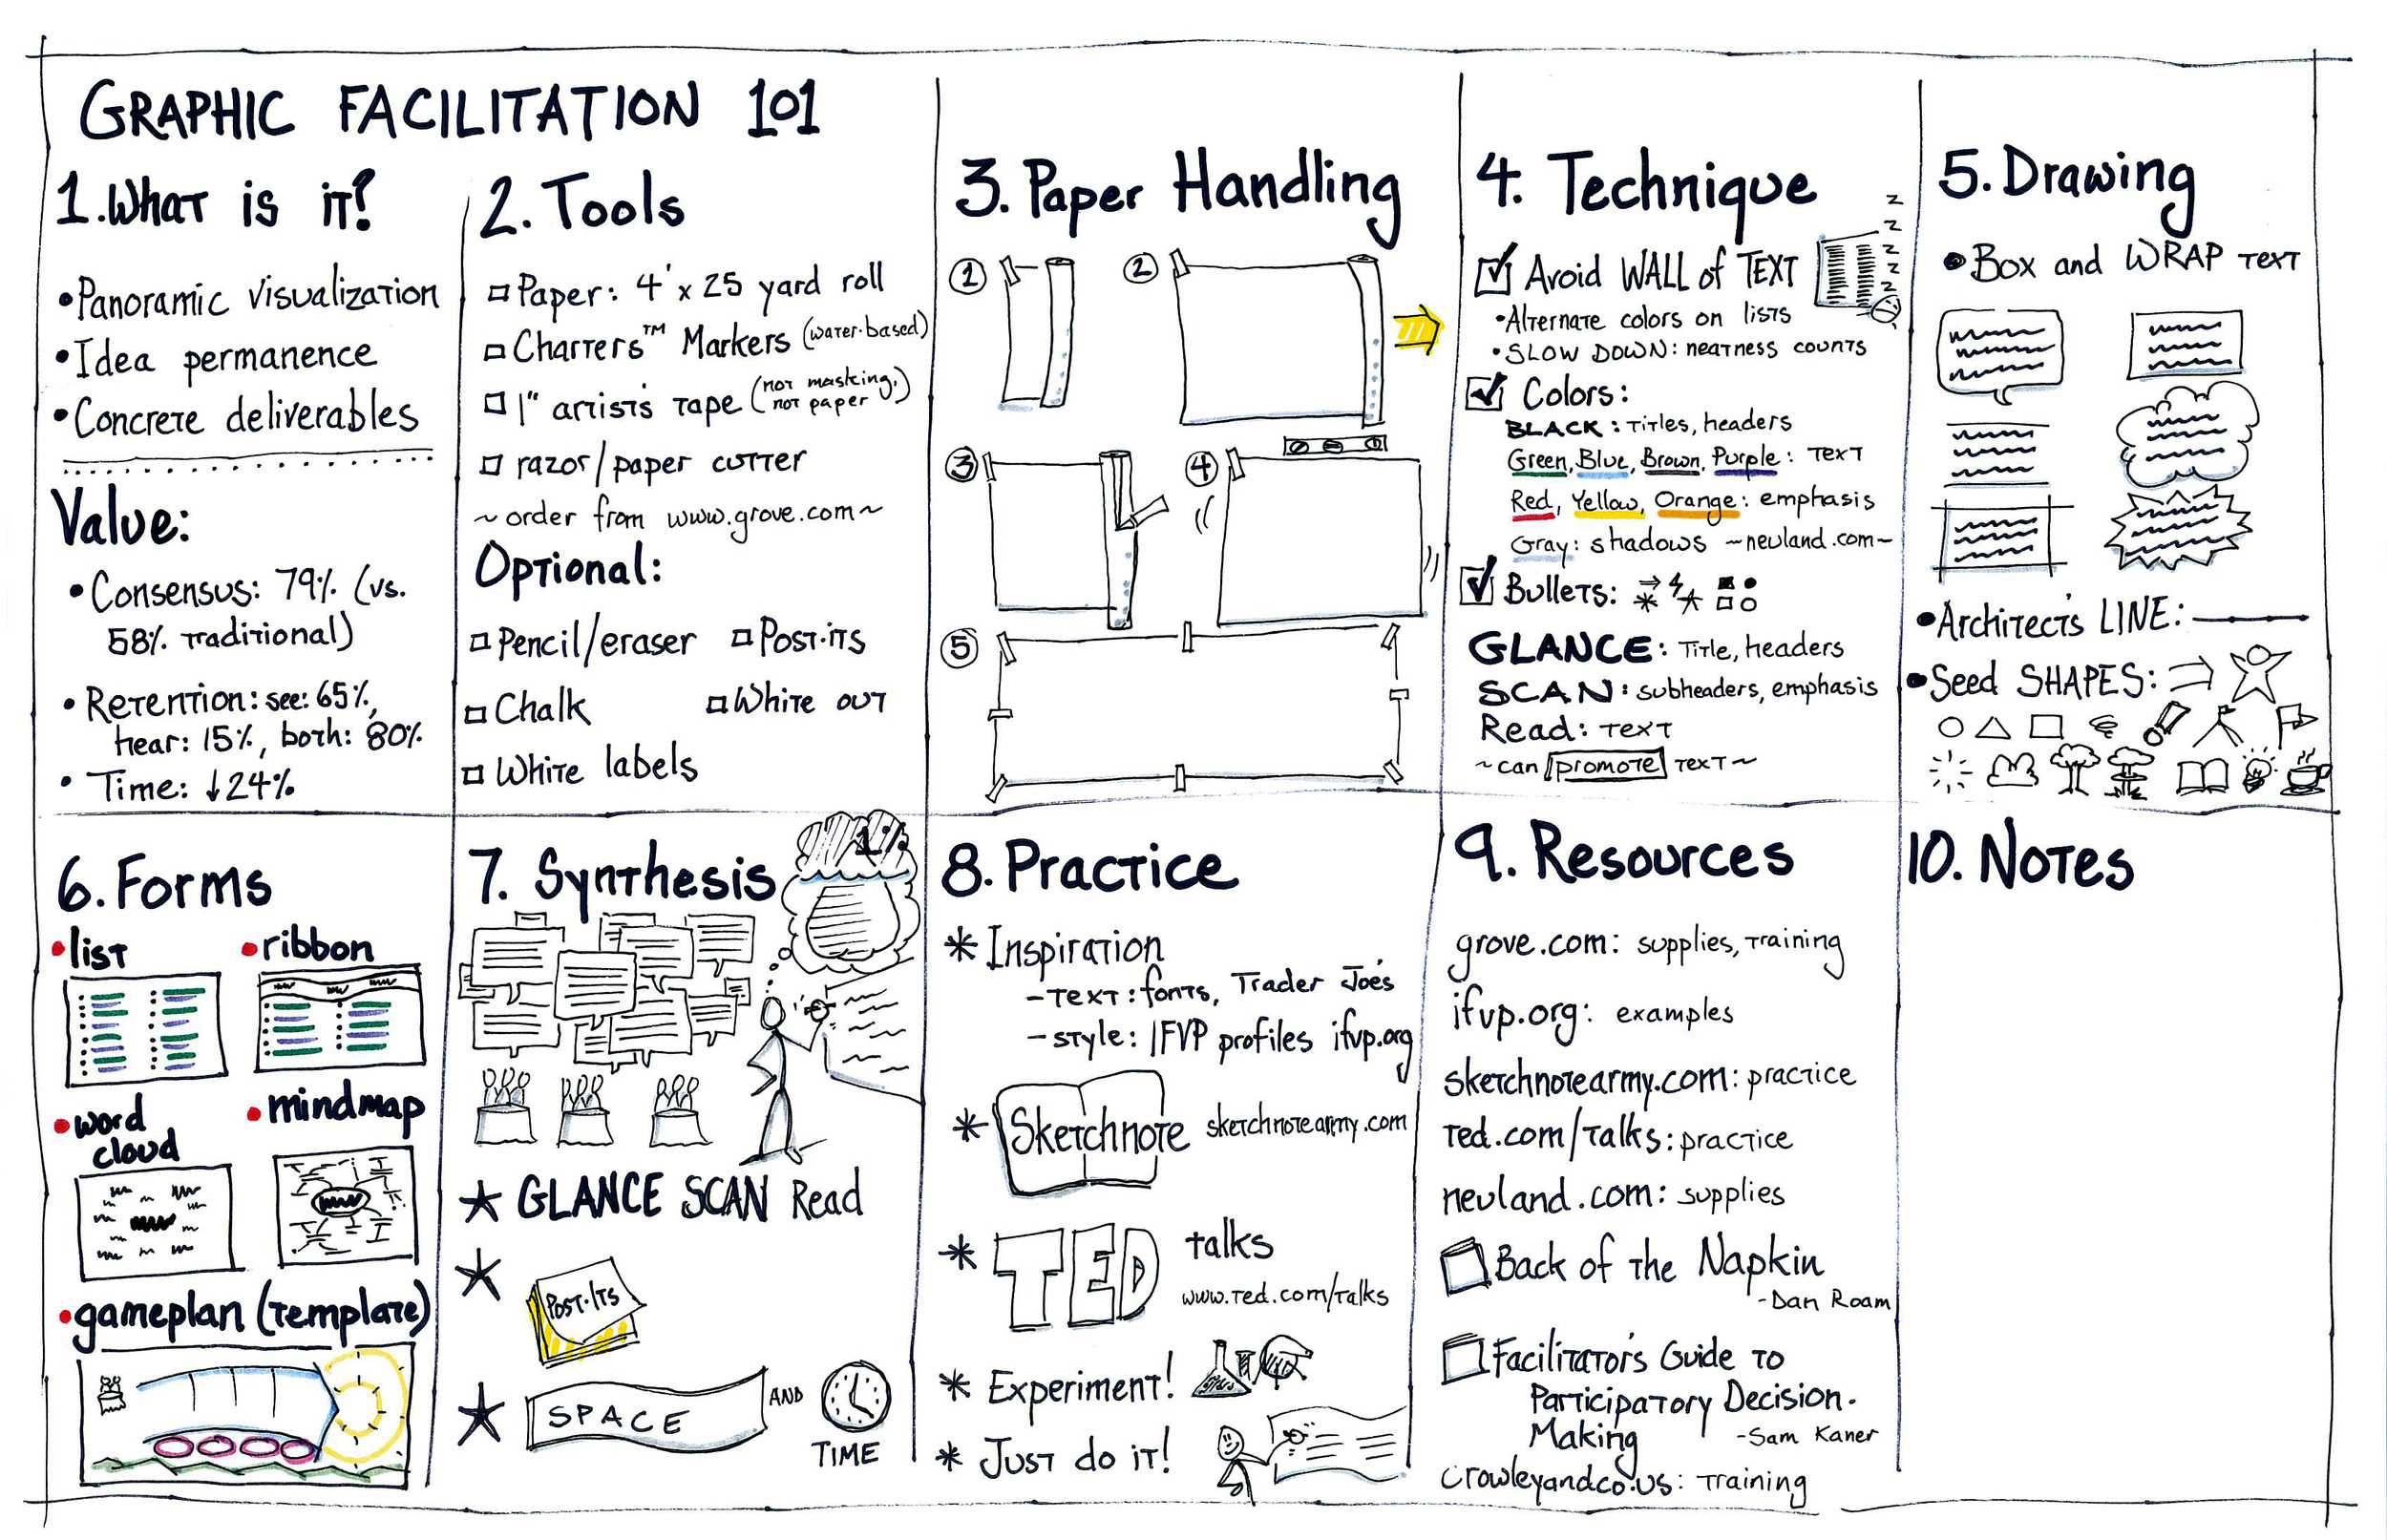 GRAPHIC FACILITATION 101
1. What is it?
• Panoramic visualization
• Idea permanence
• Concrete deliverables
Value:
• Consensus: 79% (vs.
58% traditional)
• Retention: see: 65%,
hear: 15%, both: 80%
• Time: ↓24%
2. Tools
□ Paper: 4' x 25 yard roll
□ Charters™ Markers (water-based)
□ 1" artist's tape (not masking,
not paper)
□ razor/paper cutter
~ order from www.grove.com ~
Optional:
□ Pencil/eraser □ Post-its
□ Chalk □ White out
□ White labels
3. Paper Handling
1
2
3
4
5
4. Technique
Avoid WALL of TEXT
z
z
z
z
z
z
• Alternate colors on lists
• SLOW DOWN: neatness counts
Colors:
BLACK: Titles, headers
Green, Blue, Brown, Purple: Text
Red, Yellow, Orange: emphasis
Gray: shadows ~neuland.com~
Bullets:
GLANCE: Title, headers
SCAN: subheaders, emphasis
Read: Text
~can promote text~
5. Drawing
• Box and WRAP text
• Architect's LINE:
• Seed SHAPES:
6. Forms
• list
• ribbon
• word
cloud
• mindmap
• gameplan (template)
7. Synthesis
GLANCE SCAN Read
Post-Its
SPACE AND
TIME
8. Practice
* Inspiration
- Text: fonts, Trader Joe's
- style: IFVP profiles ifvp.org
* Sketchnote sketchnotearmy.com
* TED talks
www.ted.com/talks
* Experiment!
* Just do it!
9. Resources
grove.com: supplies, training
ifvp.org: examples
sketchnotearmy.com: practice
ted.com/talks: practice
neuland.com: supplies
Back of the Napkin
-Dan Roam
Facilitator's Guide to
Participatory Decision-
Making
-Sam Kaner
crowleyandco.us: training
10. Notes